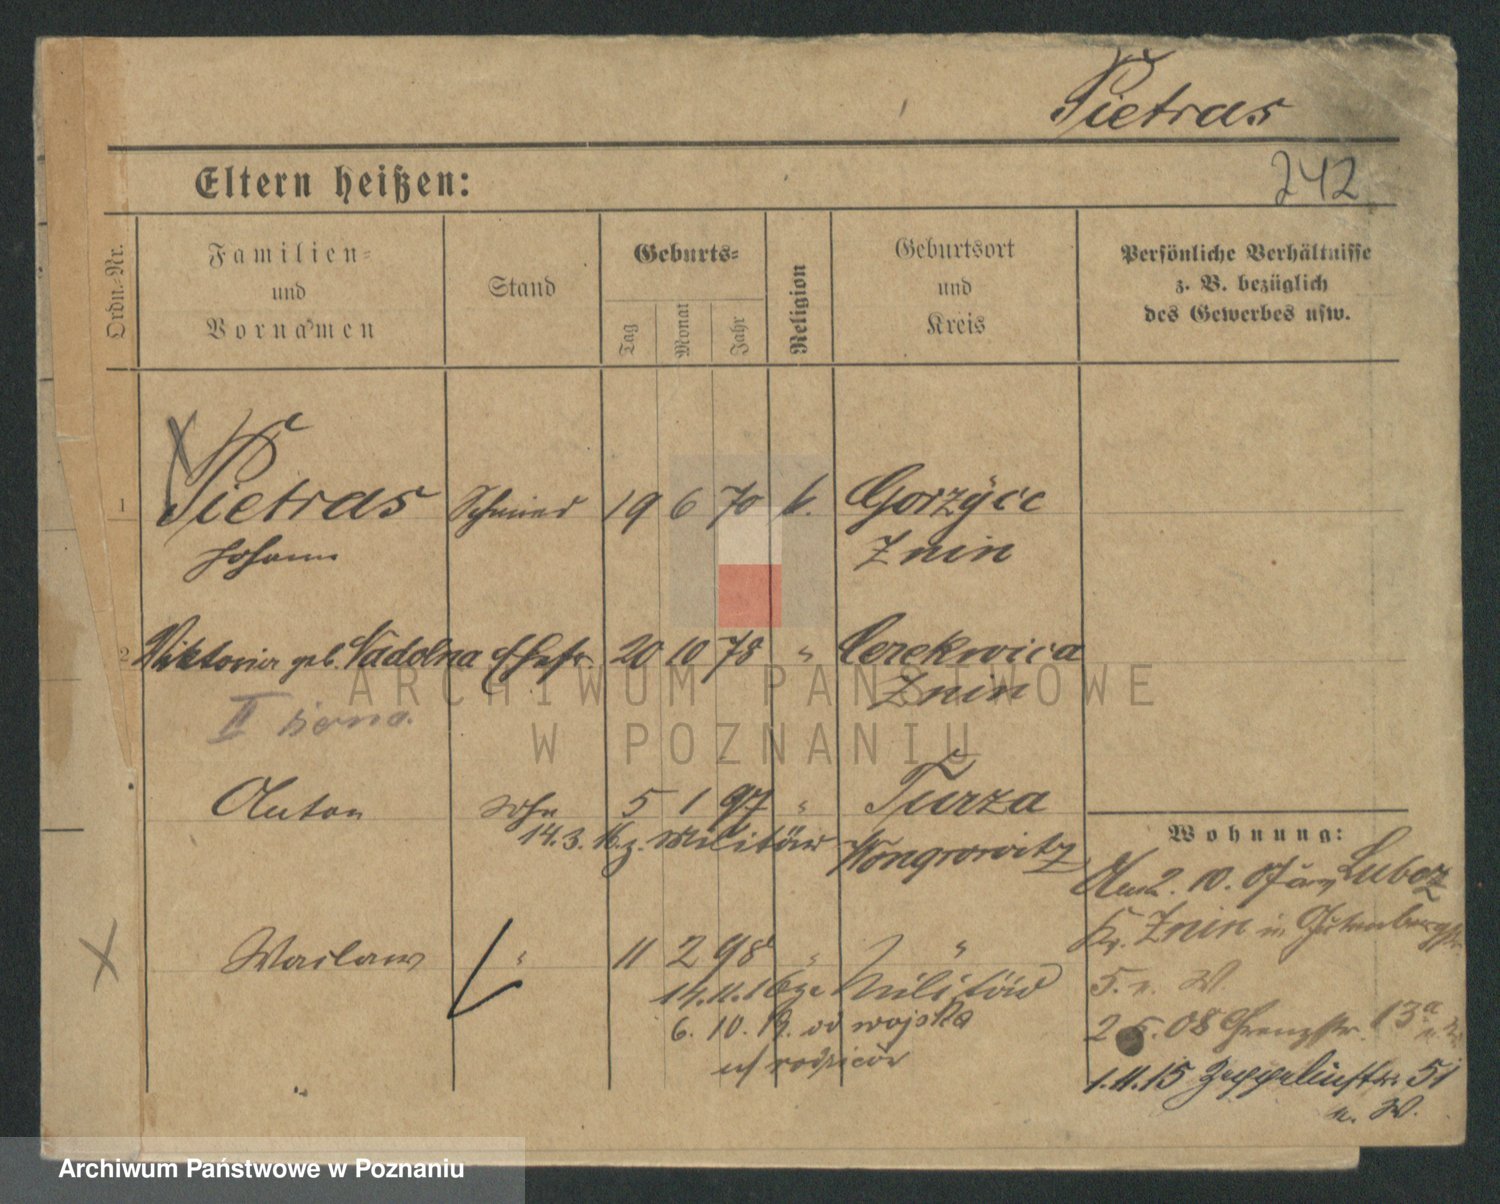 Pietras
242
Eltern heißen:
Ordn.-Nr.
Familien- und Vornamen
Stand
Geburts-
Tag
Monat
Jahr
Religion
Geburtsort und Kreis
Persönliche Verhältnisse
z. B. bezüglich
des Gewerbes usw.
1 Pietras Schmied 19 6 70 k. Gorzyce
Johann Znin
2 Viktoria geb. Nadolna Ehefr. 20 10 78 " Cerekwica
II żona Znin
Anton Sohn 5 1 97 " Turza
14.3.16 z. Militär Wongrowitz
Waclaw " 11 2 98 " "
14.11.16 Militär
6. 10. od wojska
uf rodziców
Wohnung:
2. 10. 07 aus Lubcz
Kr. Znin in Gutenbergstr.
5. n. W.
2 5. 08 Grenzstr. 13a
1.11.15 Zeppelinstr. 51
n. W.
ARCHIWUM PAŃSTWOWE
W POZNANIU
Archiwum Państwowe w Poznaniu